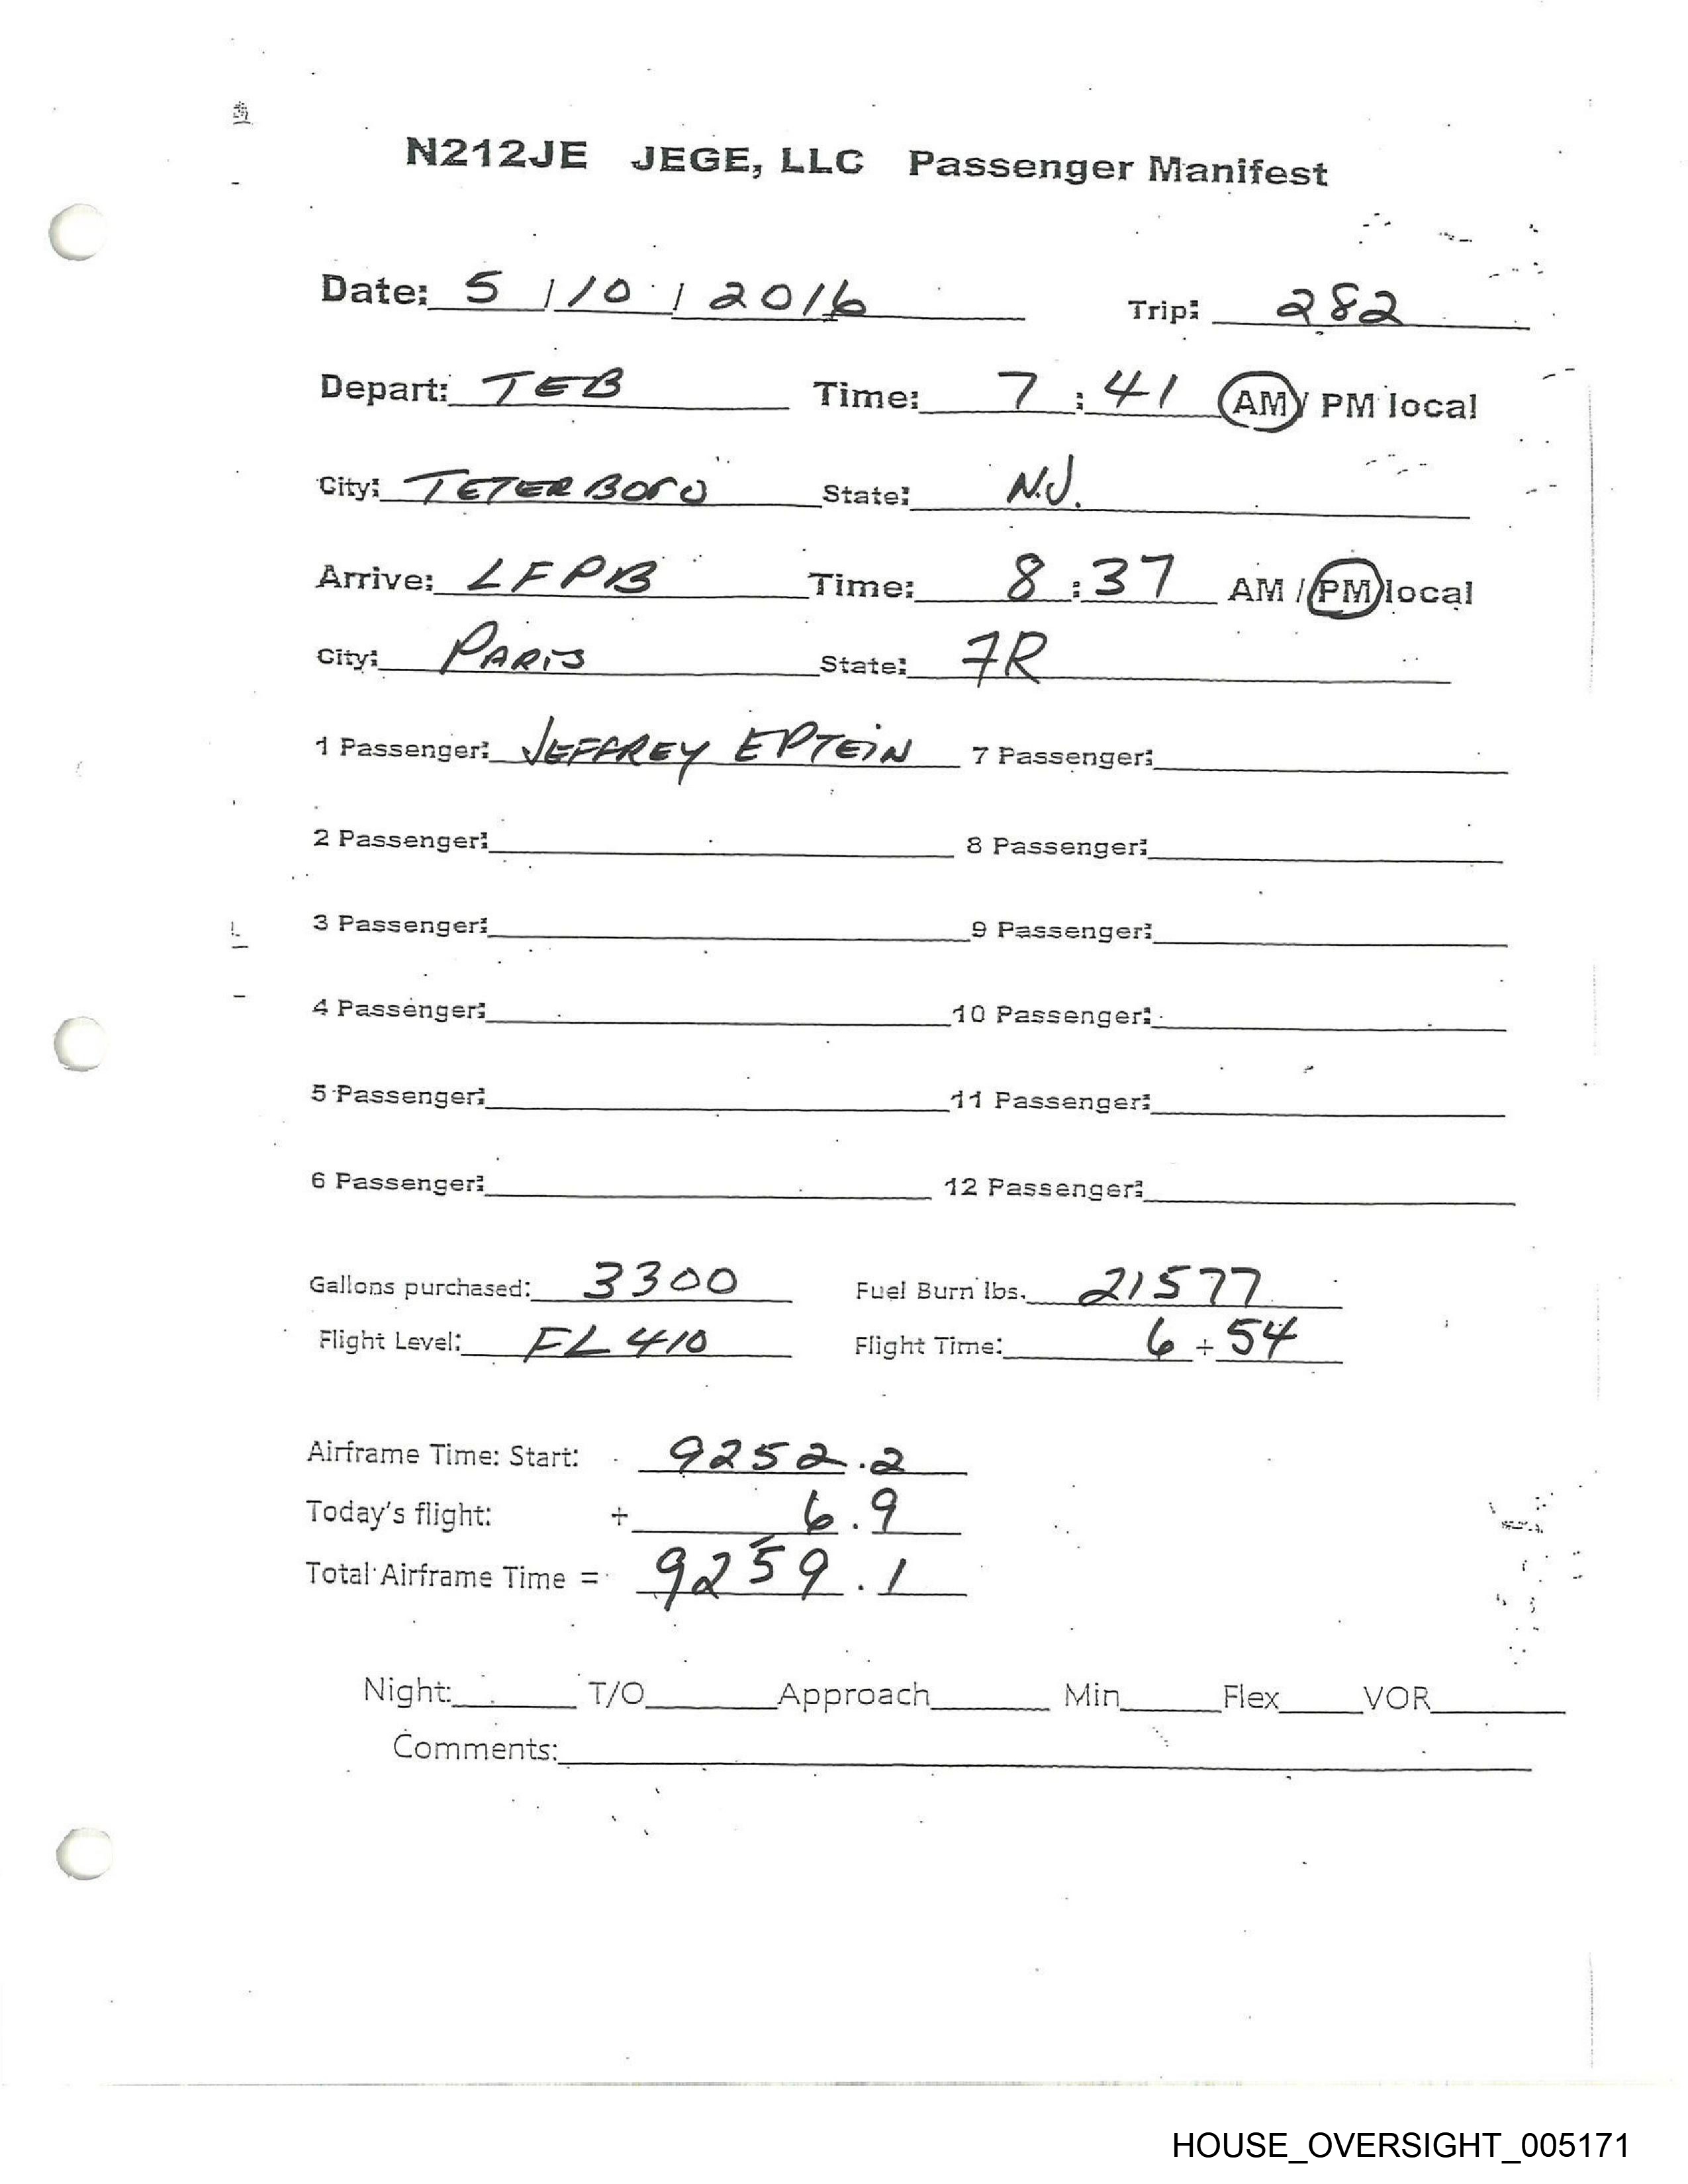 N212JE JEGE, LLC Passenger Manifest
Date: 5 / 10 / 2016 Trip: 282
Depart: TEB Time: 7 : 41 AM / PM local
City: TETERBORO State: N.J.
Arrive: LFPB Time: 8 : 37 AM / PM local
City: PARIS State: FR
1 Passenger: JEFFREY EPTEIN 7 Passenger:
2 Passenger: 8 Passenger:
3 Passenger: 9 Passenger:
4 Passenger: 10 Passenger:
5 Passenger: 11 Passenger:
6 Passenger: 12 Passenger:
Gallons purchased: 3300 Fuel Burn lbs. 21577
Flight Level: FL 410 Flight Time: 6 + 54
Airframe Time: Start: 9252.2
Today's flight: + 6.9
Total Airframe Time = 9259.1
Night: T/O Approach Min Flex VOR
Comments:
HOUSE_OVERSIGHT_005171